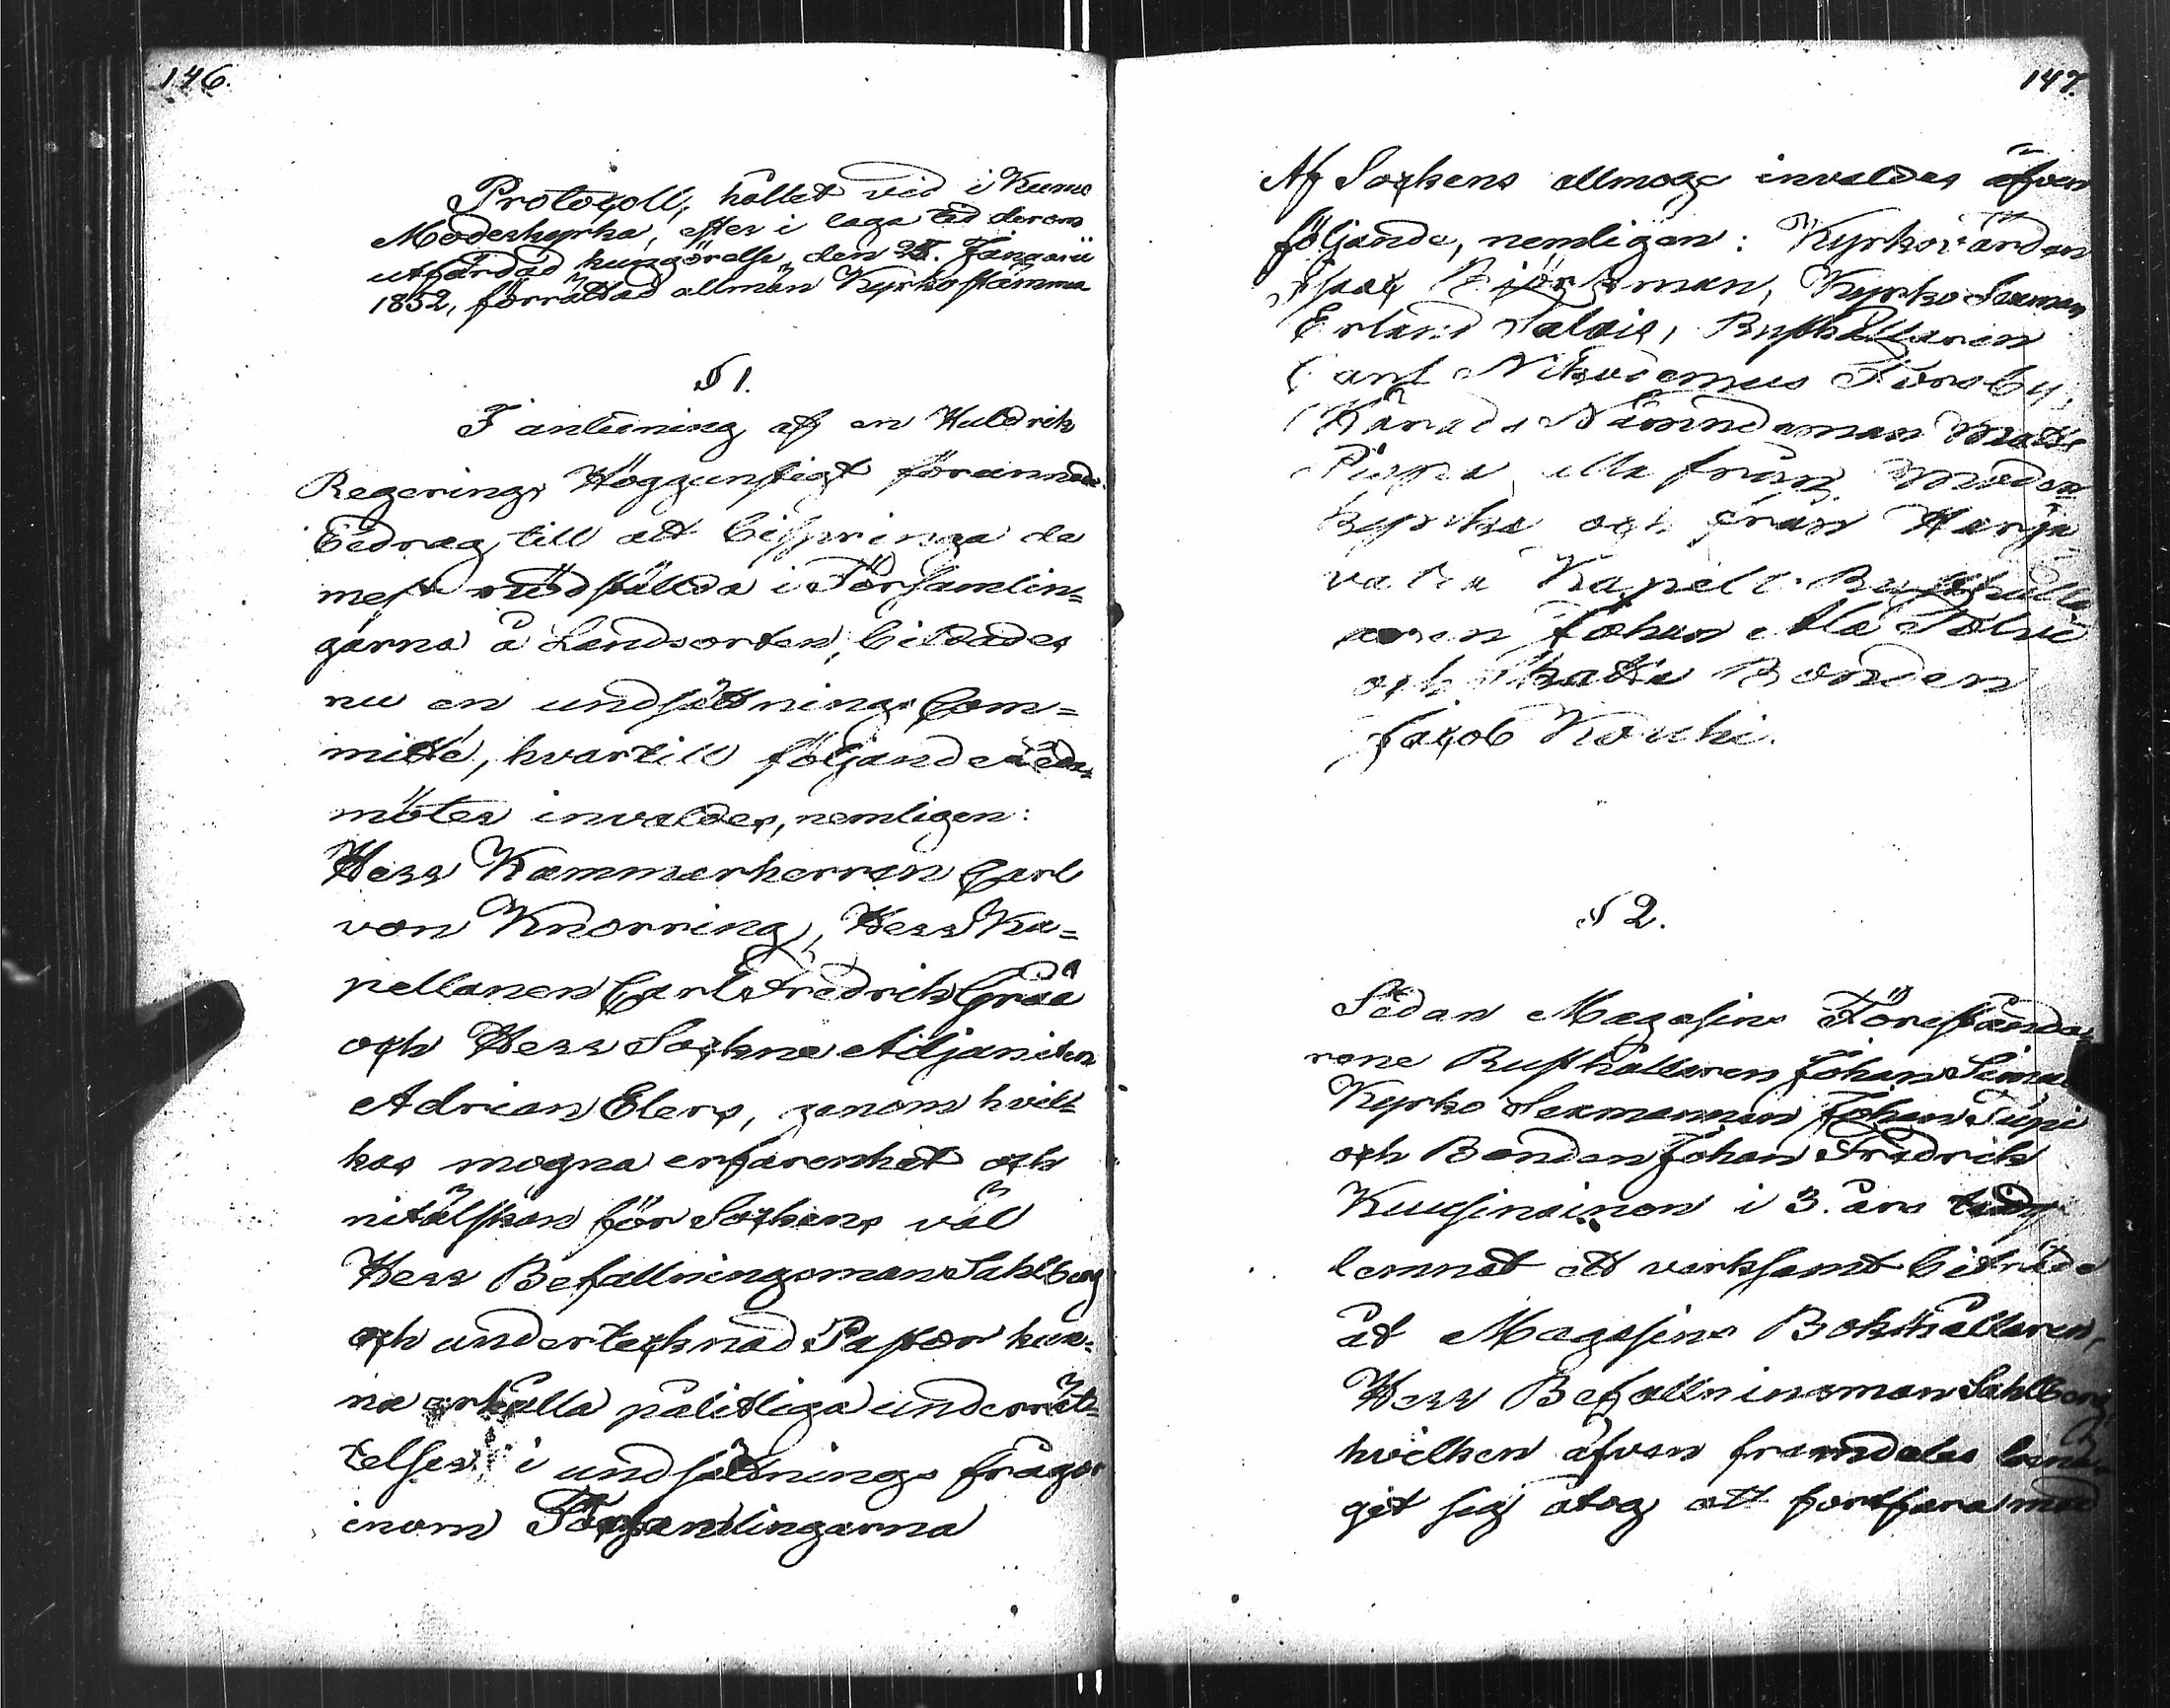 146.
Protocoll, hållet vid i Kumo
Moderkyrka, efter i laga tid derom
utfärdad kungörelse, den 25. Januarii
1852, förrättad allmän Kyrkostämma
§ 1.
I anledning af en Huldrik
Regerings Höggunstigt förannade
Bidrag till att bispringa de
mest nödställda i Församlin=
garna å Landsorten, bildades
nu en undsättnings Com=
mitté, hvartill följande Leda=
möter invaldes, nemligen:
Herr Kammarherren Carl
von Knorring, Herr Ka=
pellanen Carl Fredrik Gråå
och Herr Sockne Adjuncten
Adrian Elers, genom hvil=
kas mogna erfarenhet och
nitälskan för Sockens väl
Herr Befallningsman Sahlberg
och undertecknad Pastor kun=
na erhålla pålitliga underrät=
telser i undsättnings frågor
inom Församlingarna
147.
Af Sockens allmoge invaldes äfven
följande, nemligen: Kyrkovärden
Isaac Björkman, Kyrko Sexman
Erland Talvis, Rusthållaren
Carl Nikodemus Forsby,
Härads Nämndeman Matts
Pirpa alla från Moder
kyrka och från Harja
valta Kapell: Rusthålla
aren Johan Ala Tolvi
och Skatte Bonden
Jacob Kouhi.
§ 2.
Sedan Magasins Föreståndar
rene Rusthållaren Johan Sima
Kyrko Sexmannen Johan Supi
och Bonden Johan Fredrik
Kuusinainen i 3. års tid
lemnat ett verksamt biträde
åt Magasins Bokhållaren,
Herr Befallninsman Sahlberg
hvilken äfven framdeles
git sig åtog att fortfara med